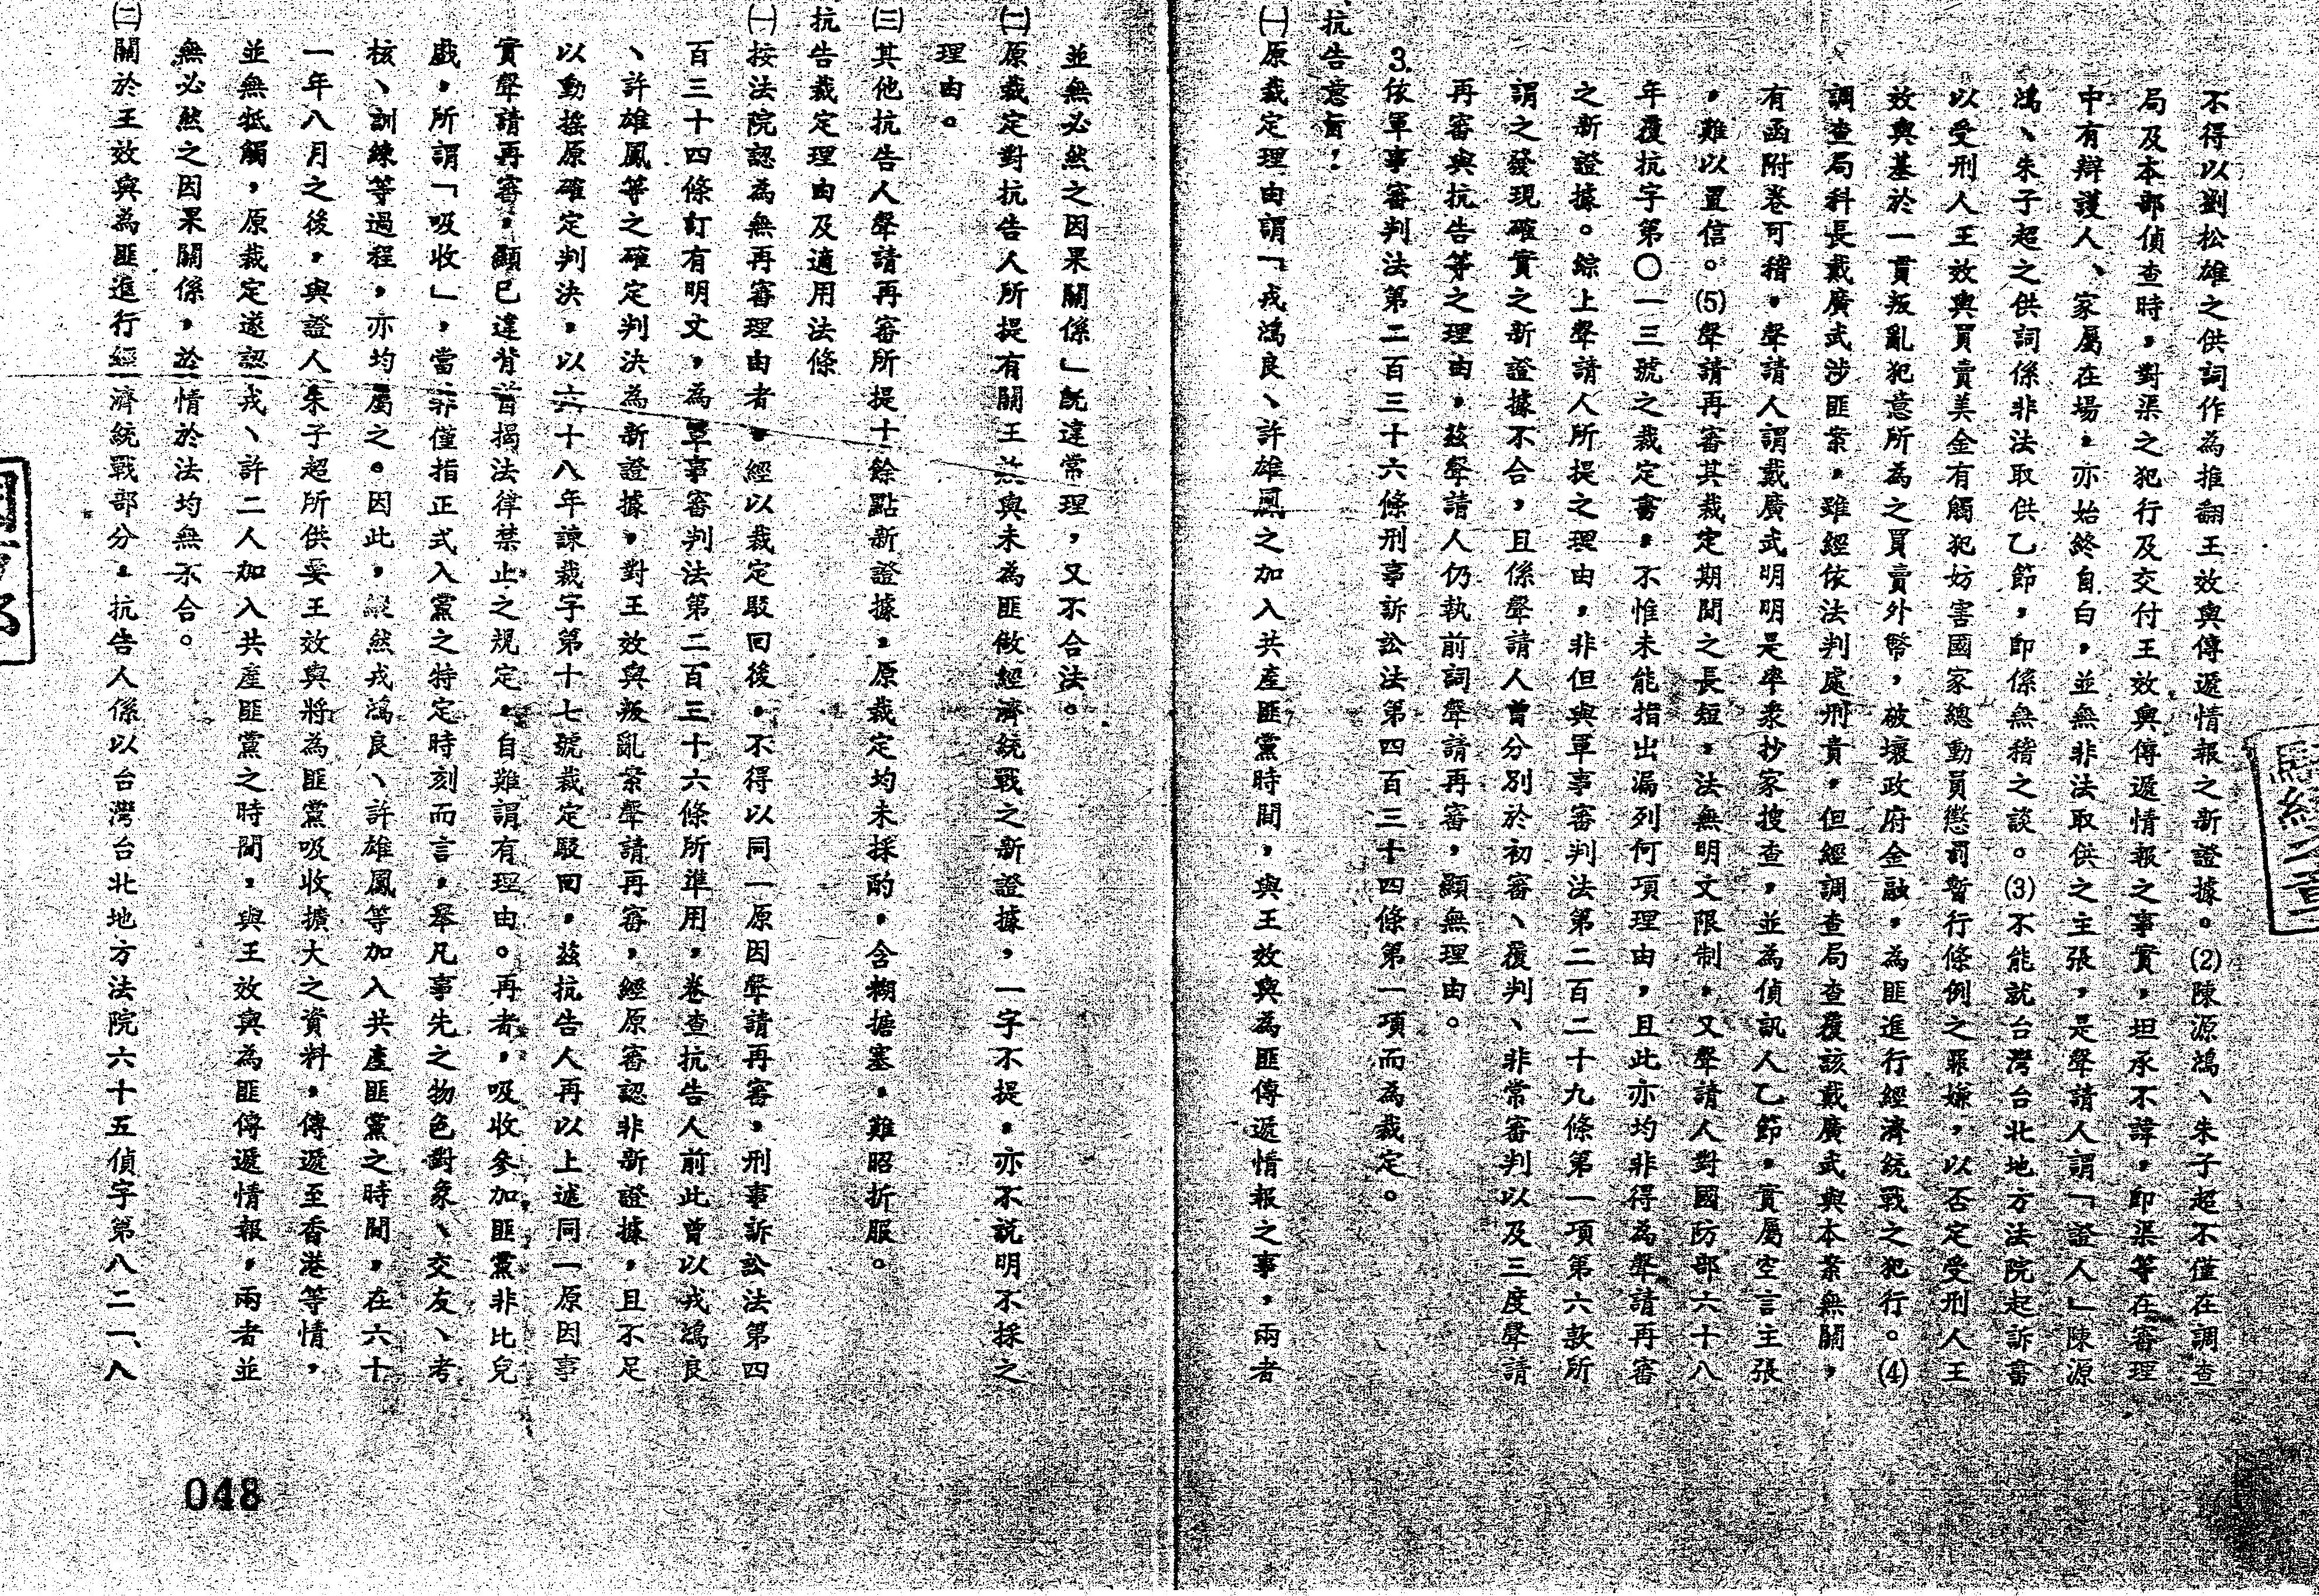 不得以劉松雄之供詞作為推翻王效與傳遞情報之新證據。(2)陳源鴻、朱子超不僅在調查
局及本部偵查時，對渠之犯行及交付王效與傳遞情報之事實，坦承不諱，即渠等在審理
中有辯護人、家屬在場，亦始終自白，並無非法取供之主張，是聲請人謂「證人」陳源
鴻、朱子超之供詞係非法取供乙節，即係無稽之談。(3)不能就台灣台北地方法院起訴書
以受刑人王效與買賣美金有觸犯妨害國家總動員懲罰暫行條例之罪嫌，以否定受刑人王
效與基於一貫叛亂犯意所為之買賣外幣，破壞政府金融，為匪進行經濟統戰之犯行。(4)
調查局科長戴廣武涉匪案，雖經依法判處刑責，但經調查局查覆該戴廣武與本案無關，
有函附卷可稽，聲請人謂戴廣武明明是率衆抄家搜查，並為偵訊人乙節，實屬空言主張
，難以置信。(5)聲請再審其裁定期間之長短，法無明文限制，又聲請人對國防部六十八
年覆抗字第〇一三號之裁定書，不惟未能指出漏列何項理由，且此亦均非得為聲請再審
之新證據。綜上聲請人所提之理由，非但與軍事審判法第二百二十九條第一項第六款所
謂之發現確實之新證據不合，且係聲請人曾分別於初審、覆判、非常審判以及三度聲請
再審與抗告等之理由，茲聲請人仍執前詞聲請再審，顯無理由。
3.依軍事審判法第二百三十六條刑事訴訟法第四百三十四條第一項而為裁定。
抗告意旨：
㈠原裁定理由謂「戎鴻良、許雄鳳之加入共產匪黨時間，與王效與為匪傳遞情報之事，兩者
並無必然之因果關係」既違常理，又不合法。
㈡原裁定對抗告人所提有關王效與未為匪做經濟統戰之新證據，一字不提，亦不説明不採之
理由。
㈢其他抗告人聲請再審所提十餘點新證據，原裁定均未採酌，含糊搪塞，難昭折服。
抗告裁定理由及適用法條
㈠按法院認為無再審理由者，經以裁定駁回後，不得以同一原因聲請再審，刑事訴訟法第四
百三十四條訂有明文，為軍事審判法第二百三十六條所準用，卷查抗告人前此曾以戎鴻良
、許雄鳳等之確定判決為新證據，對王效與叛亂案聲請再審，經原審認非新證據，且不足
以動搖原確定判決，以六十八年諫裁字第十七號裁定駁回，茲抗告人再以上述同一原因事
實聲請再審，顯已違背首揭法律禁止之規定，自難謂有理由。再者，吸收參加匪黨非比兒
戲，所謂「吸收」，當非僅指正式入黨之特定時刻而言，舉凡事先之物色對象、交友、考
核、訓練等過程，亦均屬之。因此，縱然戎鴻良、許雄鳳等加入共產匪黨之時間，在六十
一年八月之後，與證人朱子超所供妥王效與將為匪黨吸收擴大之資料，傳遞至香港等情，
並無抵觸，原裁定遂認戎、許二人加入共產匪黨之時間，與王效與為匪傳遞情報，兩者並
無必然之因果關係，於情於法均無不合。
㈡關於王效與為匪進行經濟統戰部分，抗告人係以台灣台北地方法院六十五偵字第八二一、八
048